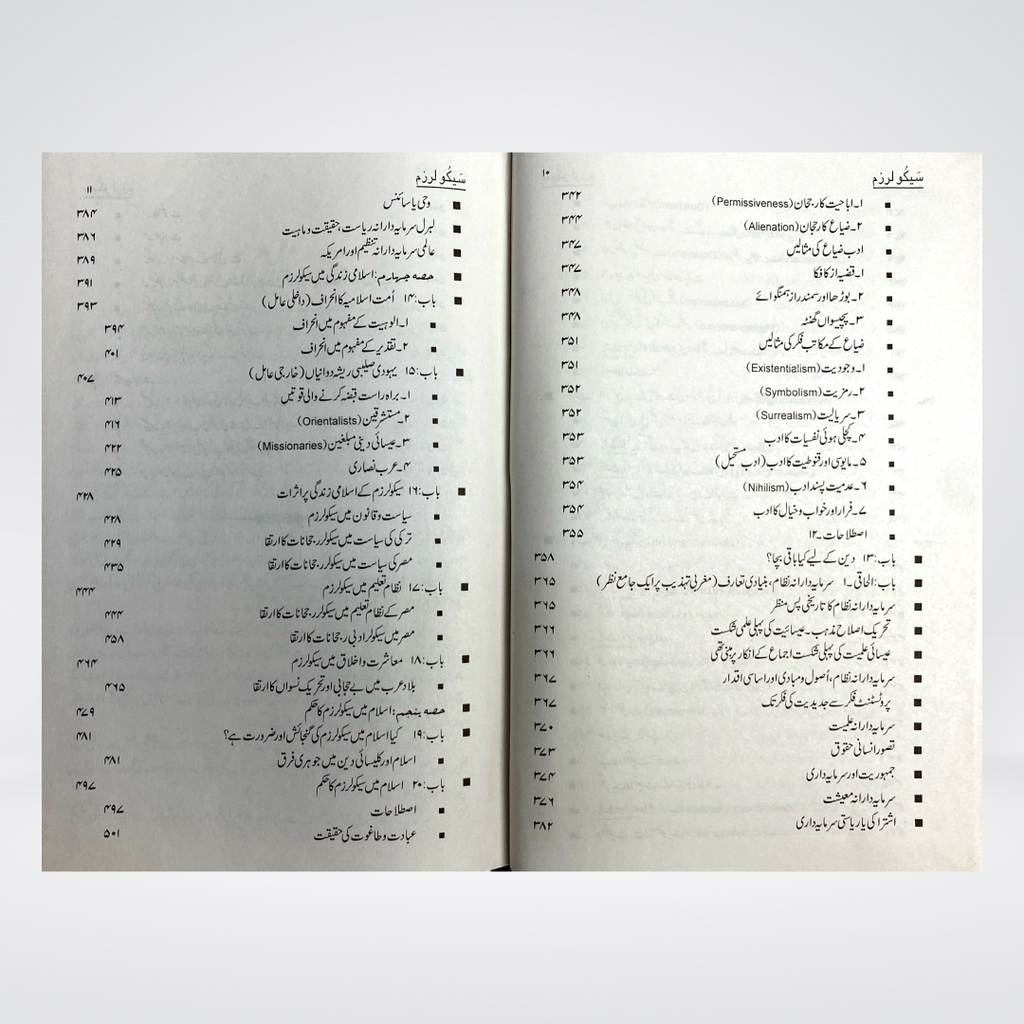 سیکُولرزم ۱۰
۱۔اباحیت کا رجحان (Permissiveness) ۳۴۲
۲۔ضیاع کا رجحان (Alienation) ۳۴۴
ادب ضیاع کی مثالیں ۳۴۷
۱۔قضیہ از کافکا ۳۴۷
۲۔بوڑھا اور سمندر از ہمنگوائے ۳۴۸
۳۔پچیسواں گھنٹہ ۳۴۸
ضیاع کے مکاتب فکر کی مثالیں ۳۵۱
۱۔وجودیت (Existentialism) ۳۵۱
۲۔رمزیت (Symbolism) ۳۵۲
۳۔سریالیت (Surrealism) ۳۵۲
۴۔کچلی ہوئی نفسیات کا ادب ۳۵۳
۵۔مایوسی اور قنوطیت کا ادب (ادب مستحیل) ۳۵۳
۶۔عدمیت پسند ادب (Nihilism) ۳۵۴
۷۔فرار اور خواب و خیال کا ادب ۳۵۴
اصطلاحات۔۱۲ ۳۵۵
باب:۱۳ دین کے لیے کیا باقی بچا؟ ۳۵۸
باب:الحاقی۔۱ سرمایہ دارانہ نظام، بنیادی تعارف (مغربی تہذیب پر ایک جامع نظر) ۳۶۵
سرمایہ دارانہ نظام کا تاریخی پس منظر ۳۶۵
تحریک اصلاح مذہب۔عیسائیت کی پہلی علمی شکست ۳۶۶
عیسائی علمیت کی پہلی شکست اجماع کے انکار پر مبنی تھی ۳۶۶
سرمایہ دارانہ نظام، اُصول و مبادی اور اساسی اقدار ۳۶۷
پروٹسٹنٹ فکر سے جدیدیت کی فکر تک ۳۶۷
سرمایہ دارانہ علمیت ۳۷۰
تصور انسانی حقوق ۳۷۳
جمہوریت اور سرمایہ داری ۳۷۴
سرمایہ دارانہ معیشت ۳۷۶
اشتراکی یا ریاستی سرمایہ داری ۳۸۲
سیکُولرزم ۱۱
وحی یا سائنس ۳۸۴
لبرل سرمایہ دارانہ ریاست، حقیقت و ماہیت ۳۸۶
عالمی سرمایہ دارانہ تنظیم اور امریکہ ۳۸۹
حصہ چہارم: اسلامی زندگی میں سیکولرزم ۳۹۱
باب:۱۴ اُمت اسلامیہ کا انحراف (داخلی عامل) ۳۹۳
۱۔الوہیت کے مفہوم میں انحراف ۳۹۴
۲۔تقدیر کے مفہوم میں انحراف ۴۰۱
باب:۱۵ یہودی صلیبی ریشہ دوانیاں (خارجی عامل) ۴۰۷
۱۔براہ راست قبضہ کرنے والی قوتیں ۴۱۳
۲۔مستشرقین (Orientalists) ۴۱۶
۳۔عیسائی دینی مبلغین (Missionaries) ۴۲۲
۴۔عرب نصاری ۴۲۵
باب:۱۶ سیکولرزم کے اسلامی زندگی پر اثرات ۴۲۸
سیاست و قانون میں سیکولرزم ۴۲۸
ترکی کی سیاست میں سیکولر رجحانات کا ارتقا ۴۲۹
مصر کی سیاست میں سیکولر رجحانات کا ارتقا ۴۳۵
باب:۱۷ نظام تعلیم میں سیکولرزم ۴۴۴
مصر کے نظام تعلیم میں سیکولر رجحانات کا ارتقا ۴۴۴
مصر میں سیکولر ادبی رجحانات کا ارتقا ۴۵۸
باب:۱۸ معاشرت و اخلاق میں سیکولرزم ۴۶۴
بلاد عرب میں بے حجابی اور تحریک نسواں کا ارتقا ۴۶۵
حصہ پنجم: اسلام میں سیکولرزم کا حکم ۴۷۹
باب:۱۹ کیا اسلام میں سیکولرزم کی گنجائش اور ضرورت ہے؟ ۴۸۱
اسلام اور کلیسائی دین میں جوہری فرق ۴۸۱
باب:۲۰ اسلام میں سیکولرزم کا حکم ۴۹۷
اصطلاحات ۴۹۷
عبادت و طاغوت کی حقیقت ۵۰۱